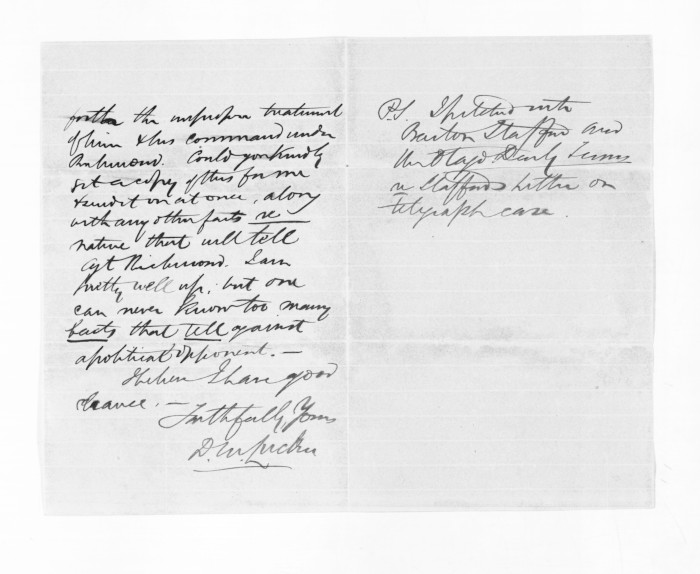 forth the improper treatment
of him & his command under
Richmond. Could you kindly
get a copy of this for me
& send it on at once, along
with any other facts re
native that will tell
agt Richmond. I am
pretty well up, but one
can never know too many
facts that tell against
a political opponent. —
I believe I have good
chance. —
Faithfully Yours
D. M. Luckie
P.S. I pitched into
Stafford and
the Otago Daily Times
re Staffords letter on
telegraph case.